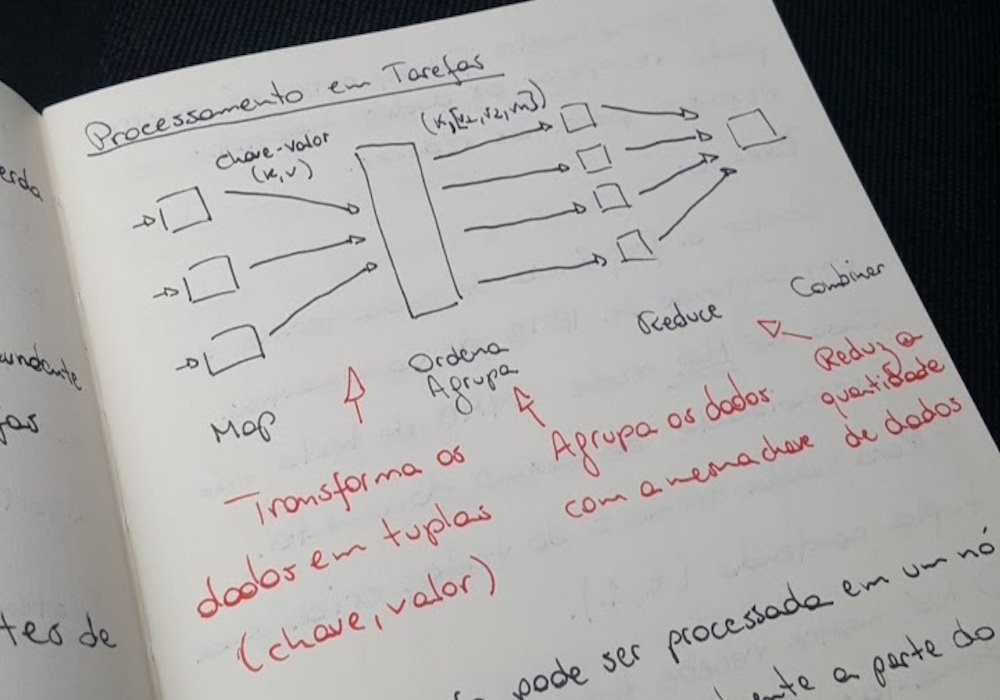 Processamento em Tarefas
chave-valor
(k,v)
(k,[v1,v2,vn])
Map
Ordena
Agrupa
Reduce
Combiner
Transforma os
dados em tuplas
(chave, valor)
Agrupa os dados
com a mesma chave
Reduz a
quantidade
de dados
pode ser processada em um nó
a parte do